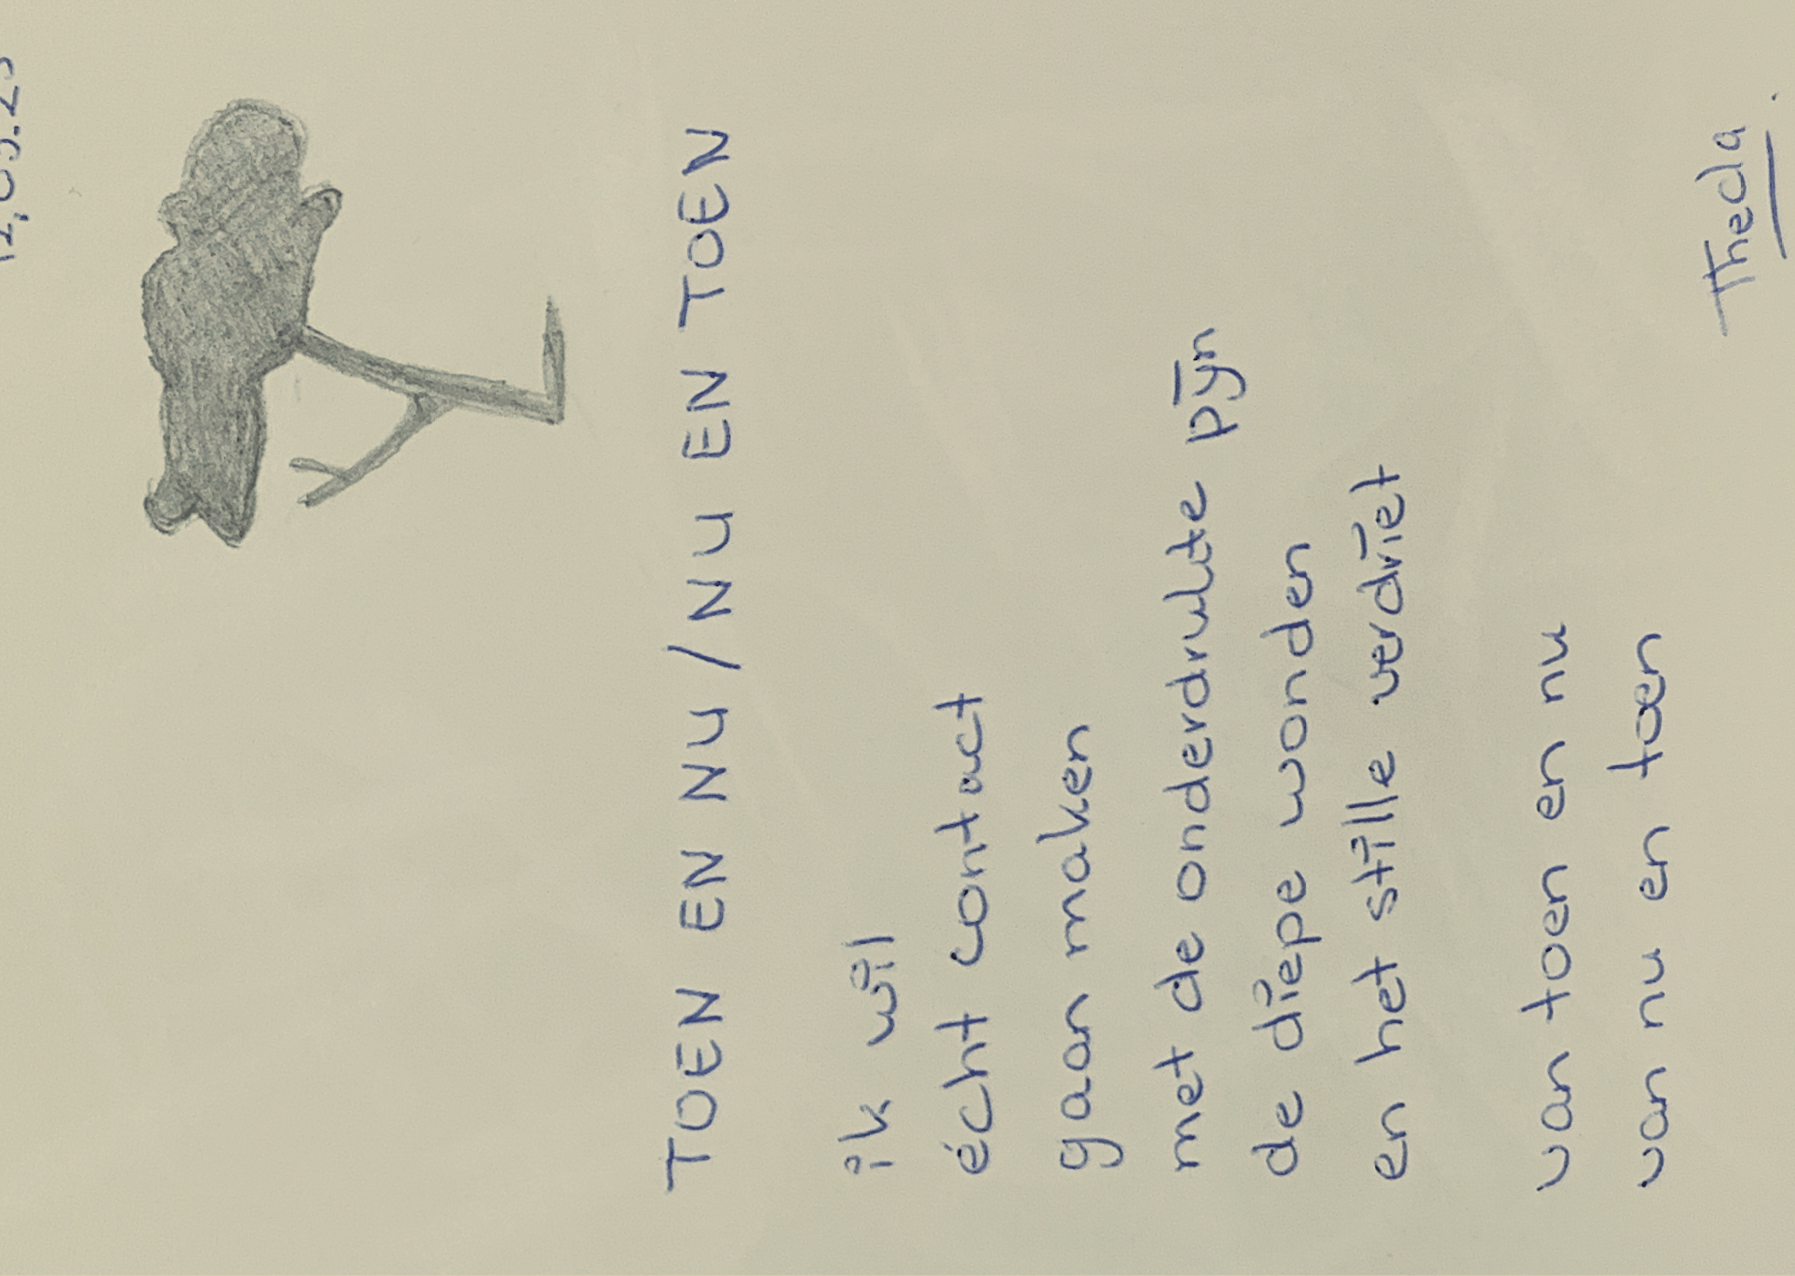 TOEN EN NU / NU EN TOEN
ik wil
écht contact
gaan maken
met de onderdrukte pijn
de diepe wonden
en het stille verdriet
van toen en nu
van nu en toen
Thecla.